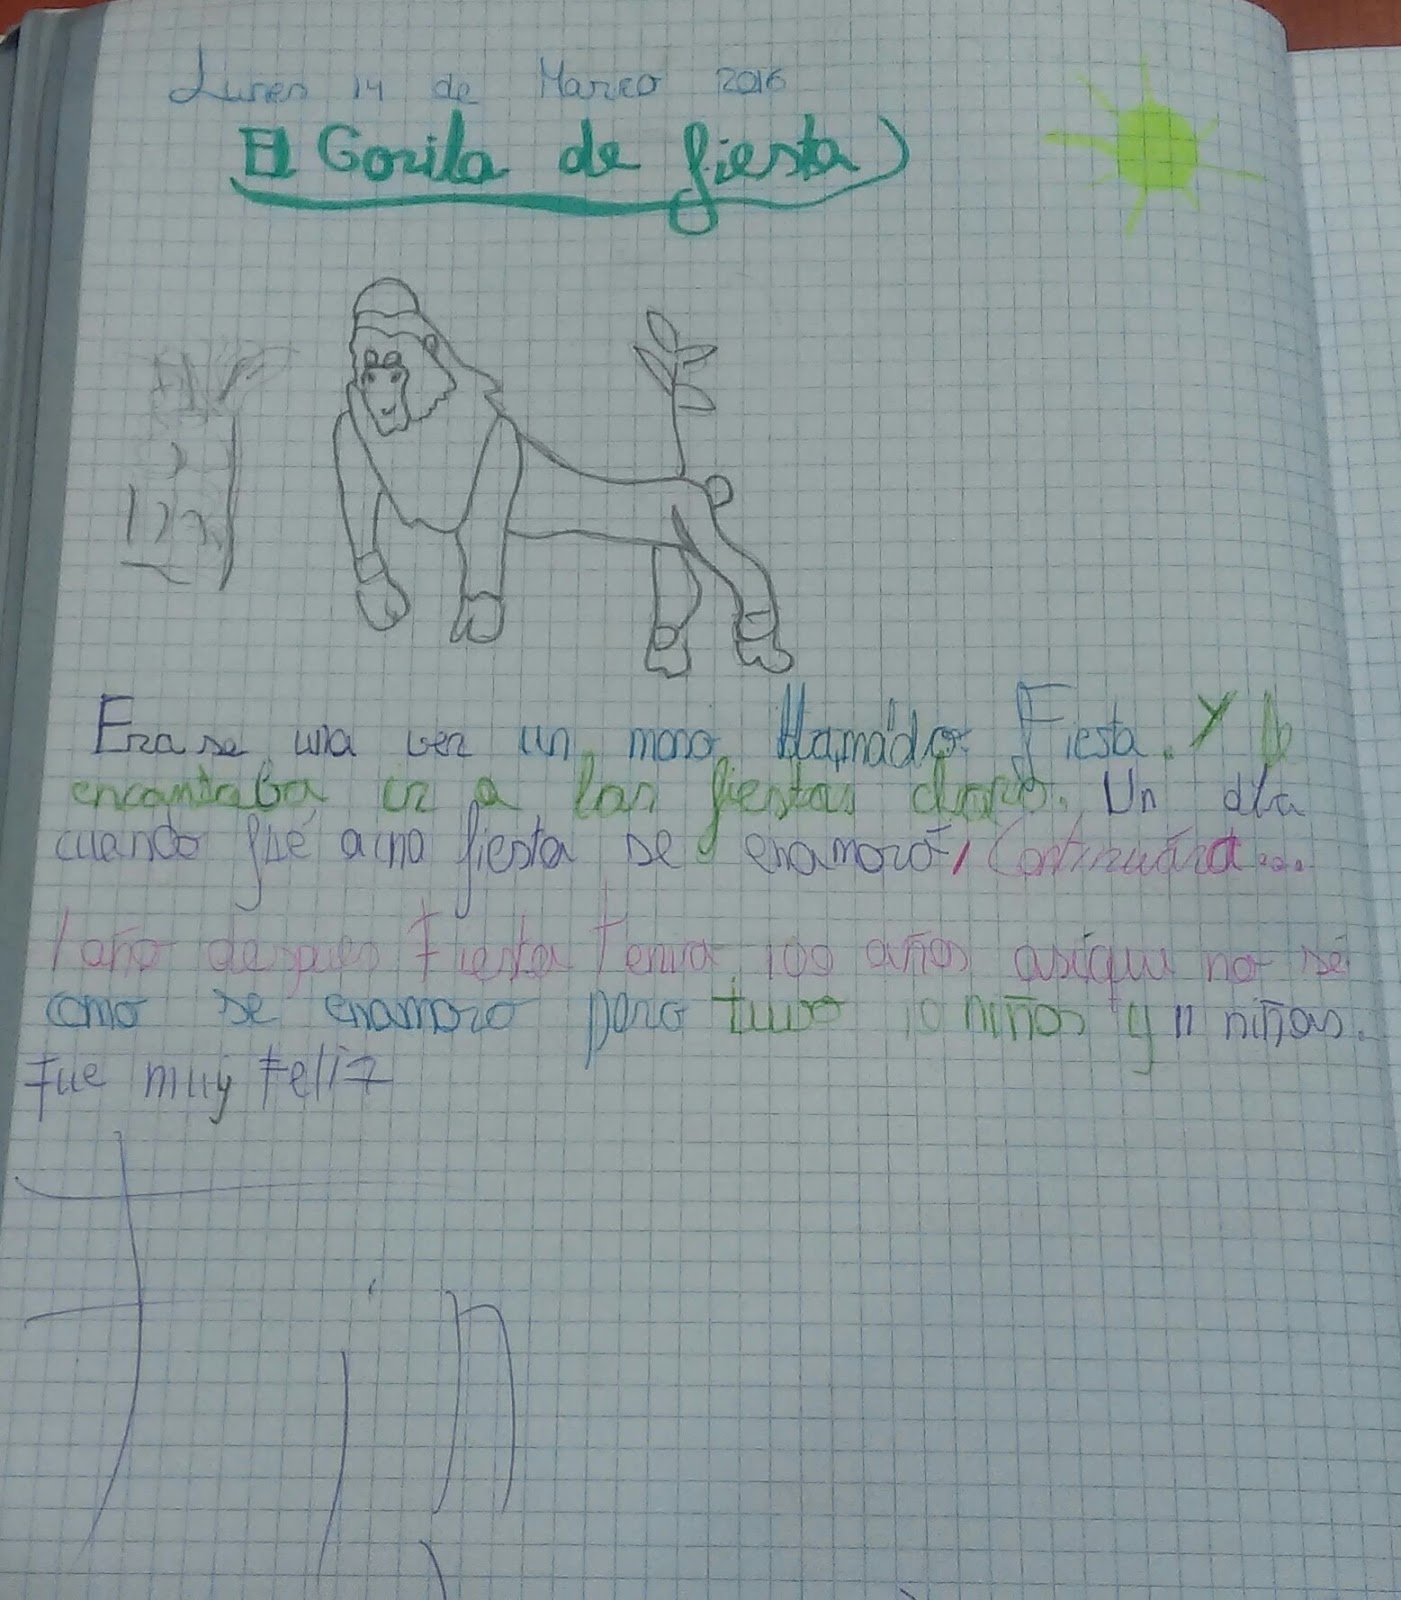 Lunes 14 de Marzo 2016
El Gorila de fiesta
Erase una vez un mono llamado Fiesta. Y le
encantaba ir a las fiestas claro. Un día
cuando fué a una fiesta se enamoró, Continuára...
1 año despues Fiesta Tenia 100 años asique no sé
como se enamoro pero tuvo 10 niños y 11 niñas.
Fue muy Feliz
Fin